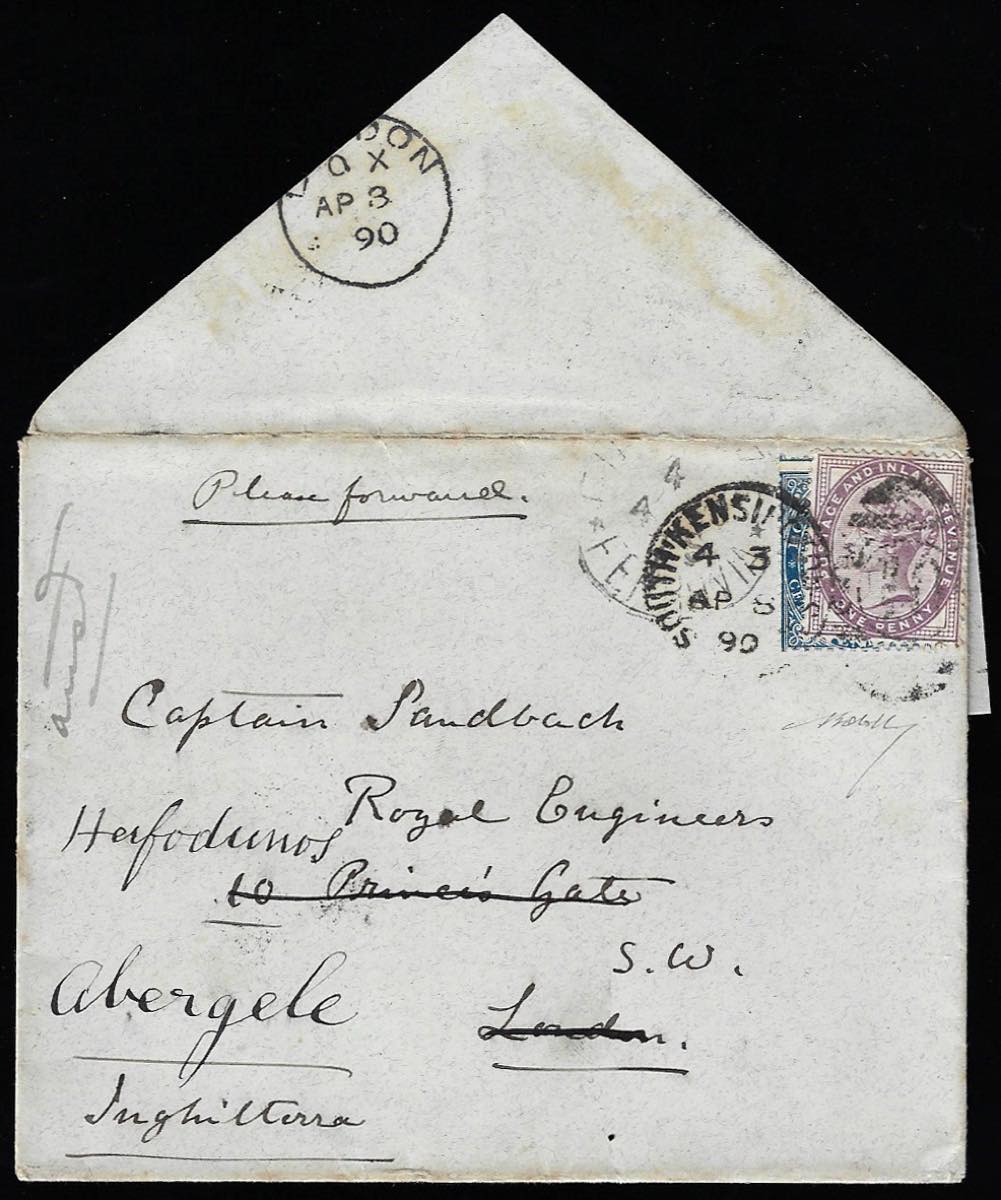 LONDON
Q X
AP 8
90
Please forward.
4 4
SOUTH KENSINGTON
4 3
AP 8
90
AGE AND INLAND REVENUE
ONE PENNY
CE
Captain Sandbach
Royal Engineers
Hafodunos
10 Prince's Gate
S.W.
Abergele
London.
Inghilterra